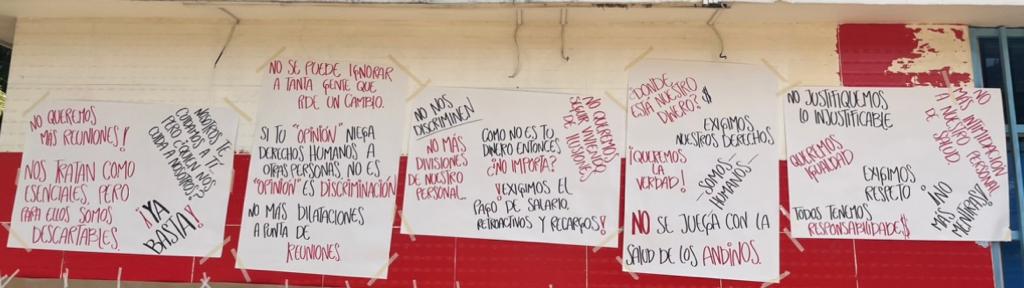 NO QUEREMOS
MAS REUNIONES!
NOSOTROS TE
CUIDAMOS A TI
PERO ¿QUIÉN NOS
CUIDA A NOSOTROS?
NOS TRATAN COMO
ESENCIALES, PERO
PARA ELLOS SOMOS
DESCARTABLES.
¡YA
BASTA!
NO SE PUEDE IGNORAR
A TANTA GENTE QUE
PIDE UN CAMBIO.
SI TU "OPINIÓN" NIEGA
DERECHOS HUMANOS A
OTRAS PERSONAS NO ES
"OPINIÓN" ES DISCRIMINACIÓN
NO MAS DILATACIONES
A PUNTA DE
REUNIONES
NO NOS
DISCRIMINEN
NO MÁS
DIVISIONES
DE NUESTRO
PERSONAL.
NO QUEREMOS
SEGUIR VIVIENDO
DE ILUSIONES
COMO NO ES TU
DINERO ENTONCES
¿NO IMPORTA?
¡EXIGIMOS EL
PAGO DE SALARIO,
RETROACTIVOS Y RECARGOS!
¿DONDE
ESTÁ NUESTRO
DINERO? $
EXIGIMOS
NUESTROS DERECHOS
¡QUEREMOS
LA
VERDAD!
-SOMOS-
HUMANOS
NO SE JUEGA CON LA
SALUD DE LOS ANDINOS.
NO JUSTIFIQUEMOS
LO INJUSTIFICABLE
NO
MÁS INTIMIDACION
A NUESTRO PERSONAL
DE SALUD
QUEREMOS
IGUALDAD
EXIGIMOS
RESPETO
¡NO
MAS
MENTIRAS!
TODOS TENEMOS
RESPONSABILIDADE$